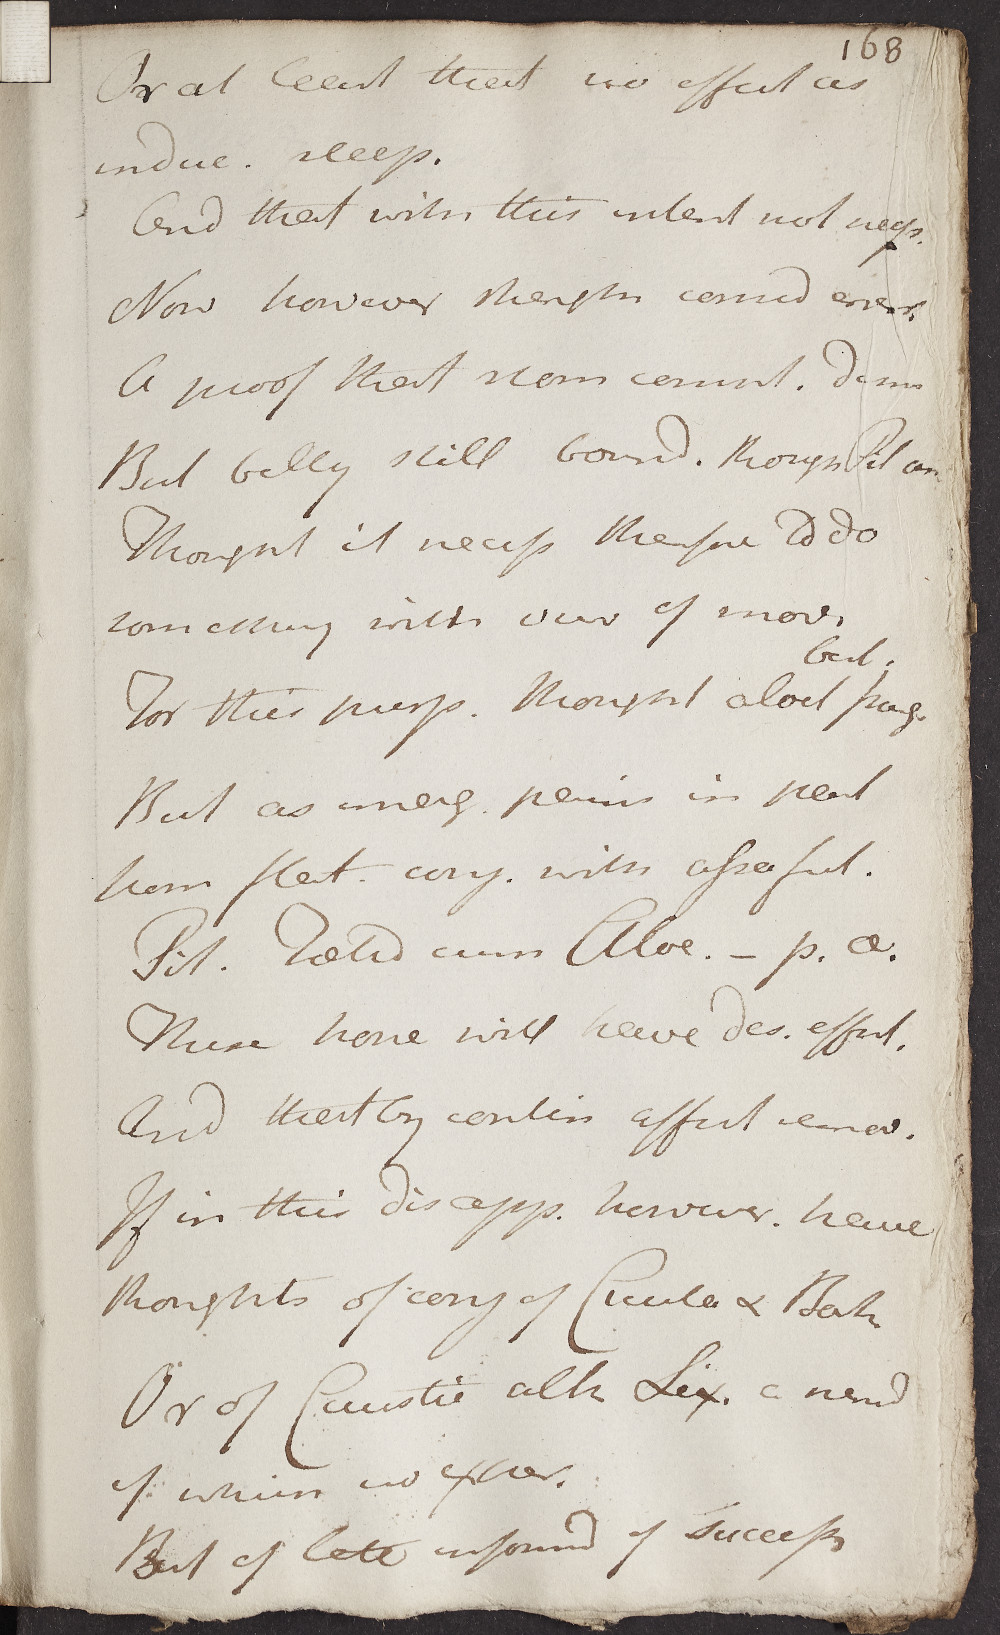 168
Or at least that no effect as
induc. sleep.
And that with this intent not necess.
Now however strength
A proof that stom
But belly still bound. though Pil
Thought it necess therefore to do
something with view of mov.
bel.
For this purp. thought aloet purg.
But as emerg. pains in part
from flat. conj. with assafoet.
Pil. Foetid cum Aloe. – p. æ.
These hope will have des. effect.
And that by contin effect
If in this disapp. however. have
thoughts of conj of Cicuta & Bark
Or of Caustic alk Lix. a remed
of which no exper.
But of late informd of success